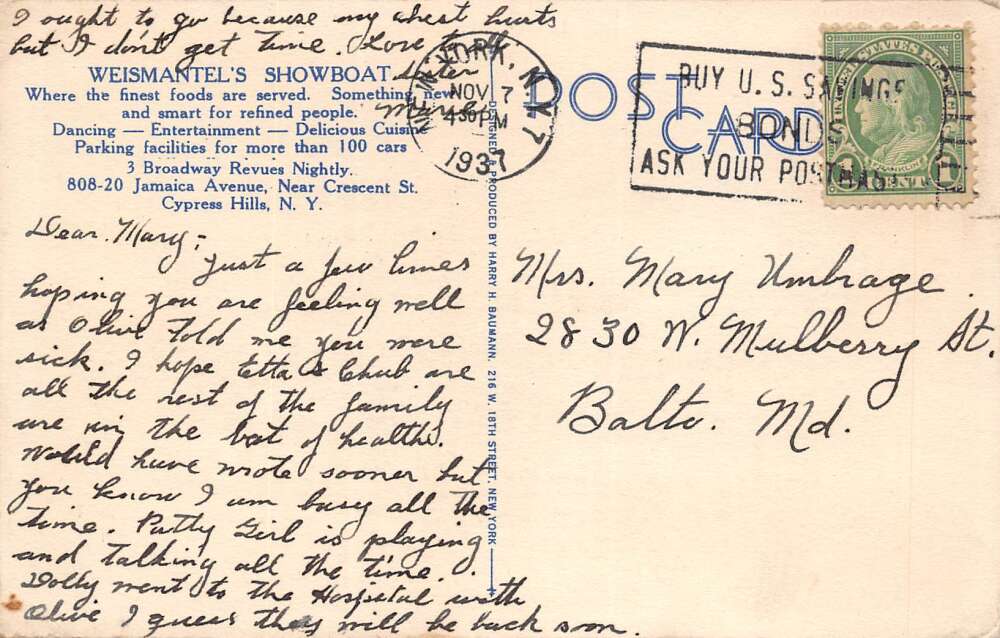 I ought to go because my chest hurts
but I don't get time. Love to all
Sister
WEISMANTEL'S SHOWBOAT
Where the finest foods are served. Something new
and smart for refined people.
Dancing — Entertainment — Delicious Cuisine
Parking facilities for more than 100 cars
3 Broadway Revues Nightly.
808-20 Jamaica Avenue, Near Crescent St.
Cypress Hills, N. Y.
Dear Mary,-
Just a few lines
hoping you are feeling well
as Olive told me you were
sick. I hope Etta & Chub are
all the rest of the family
are in the bet of health.
Would have wrote sooner but
you know I am busy all the
time. Patty Girl is playing
and talking all the time.
Dolly went to the Hospital with
Olive I guess they will be back soon.
DESIGNED & PRODUCED BY HARRY H. BAUMANN, 216 W. 18TH STREET, NEW YORK
NEW YORK, N.Y. 7
NOV 7
430 PM
1937
POST
CARD
BUY U.S. SAVINGS
BONDS
ASK YOUR POSTMASTER
UNITED STATES POSTAGE
FRANKLIN
1 CENT 1
Mrs. Mary Umbrage
2830 W. Mulberry St.
Balto. Md.